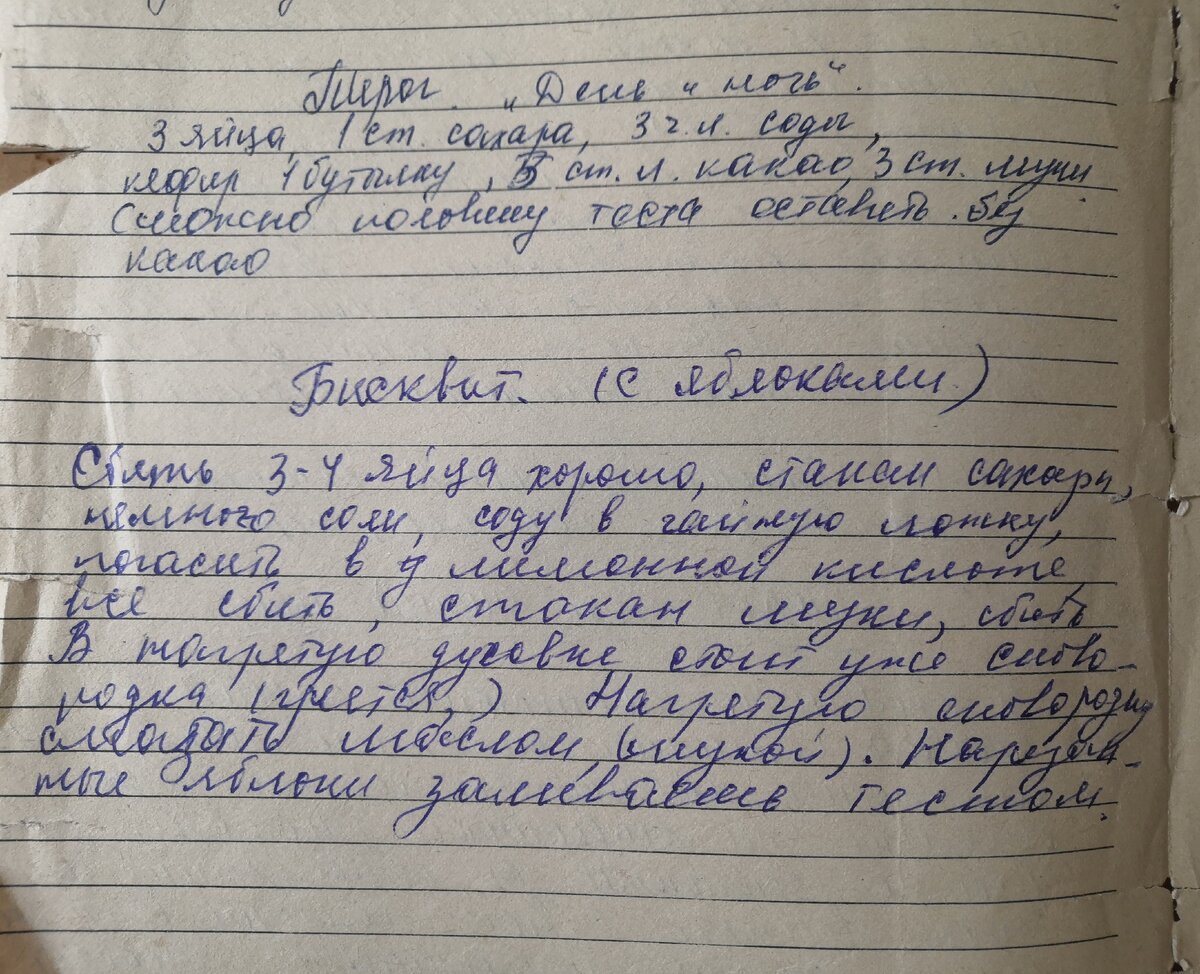 Пирог. „День и ночь".
3 яйца, 1 ст. сахара, 3 ч.л. соды,
кефир 1 бутылку, 3 ст. л. какао, 3 ст. муки
(можно половину теста оставить без
какао
Бисквит. (с яблоками)
Сбить 3-4 яйца хорошо, стакан сахара,
немного соли, соду в чайную ложку,
погасить в лимонной кислоте,
все сбить, стакан муки, сбить
В нагретую духовке стоит уже сково-
родка (греется,) Нагретую сковородку
смазать маслом, (мукой). Нарезан-
ные яблоки заливаешь тестом.